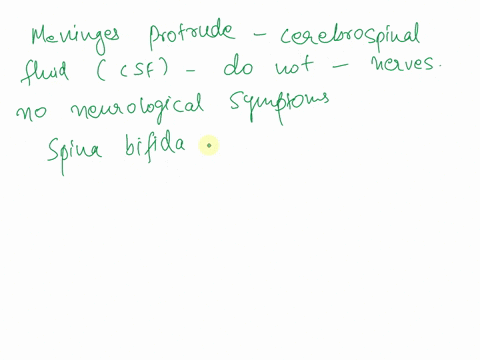 Meninges Protrude - cerebrospinal
fluid (CSF) - do not - nerves.
no neurological symptoms
Spina bifida